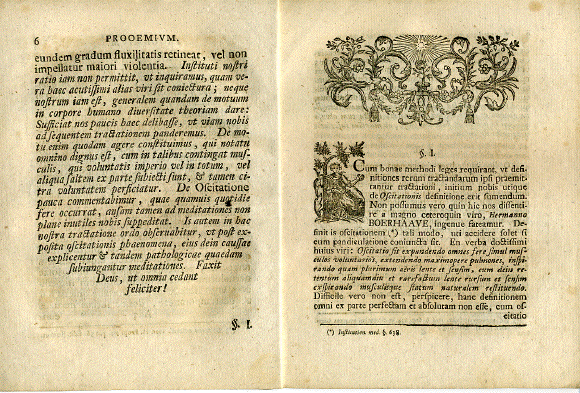 6 PROOEMIVM.
eundem gradum fluxilitatis retineat, vel non
impellatur maiori violentia. Instituti nostri
ratio iam non permittit, vt inquiramus, quam ve-
ra haec acutissimi alias viri sit coniectura; neque
nostrum iam est, generalem quandam de motuum
in corpore humano diuersitate theoriam dare:
Sufficiat nos paucis haec delibasse, vt viam nobis
ad sequentem tractationem panderemus. De mo-
tu enim quodam agere constituimus, qui notatu
omnino dignus est, cum in talibus contingat mus-
culis, qui voluntatis imperio vel in totum, vel
aliqua saltem ex parte subiecti sunt, & tamen ci-
tra voluntatem perficiatur. De Oscitatione
pauca commentabimur, quae quamuis quotidie
fere occurrat, ansam tamen ad meditationes non
plane inutiles nobis suppeditat. Is autem in hac
nostra tractatione ordo obseruabitur, vt post ex-
posita oscitationis phaenomena, eius dein caussae
explicentur & tandem pathologicae quaedam
subiungantur meditationes. Faxit
Deus, ut omnia cedant
feliciter!
§. I.
§. I.
Cum bonae methodi leges requirant, vt defi-
nitiones rerum tractandarum ipsi praemit-
tantur tractationi, initium nobis vtique
de Oscitationis definitione erit sumendum.
Non possumus vero quin hic nos dissenti-
re a magno ceteroquin viro, Hermanno
BOERHAAVE, ingenue fateamur. De-
finit is oscitationem (*) tali modo, uti accidere solet si
cum pandiculatione coniuncta sit. En verba doctissimi
huius viri: Oscitatio fit expandendo omnes fere simul mus-
culos voluntarios, extendendo maximopere pulmones, inspi-
rando quam plurimum aëris lente et sensim, eum dein re-
tentum aliquamdiu et rarefactum lente rursum et sensim
exspirando musculisque statum naturalem restituendo.
Difficile vero non est, perspicere, hanc definitionem
omni ex parte perfectam et absolutam non esse, cum os-
citatio
(*) Institution med. §. 638.